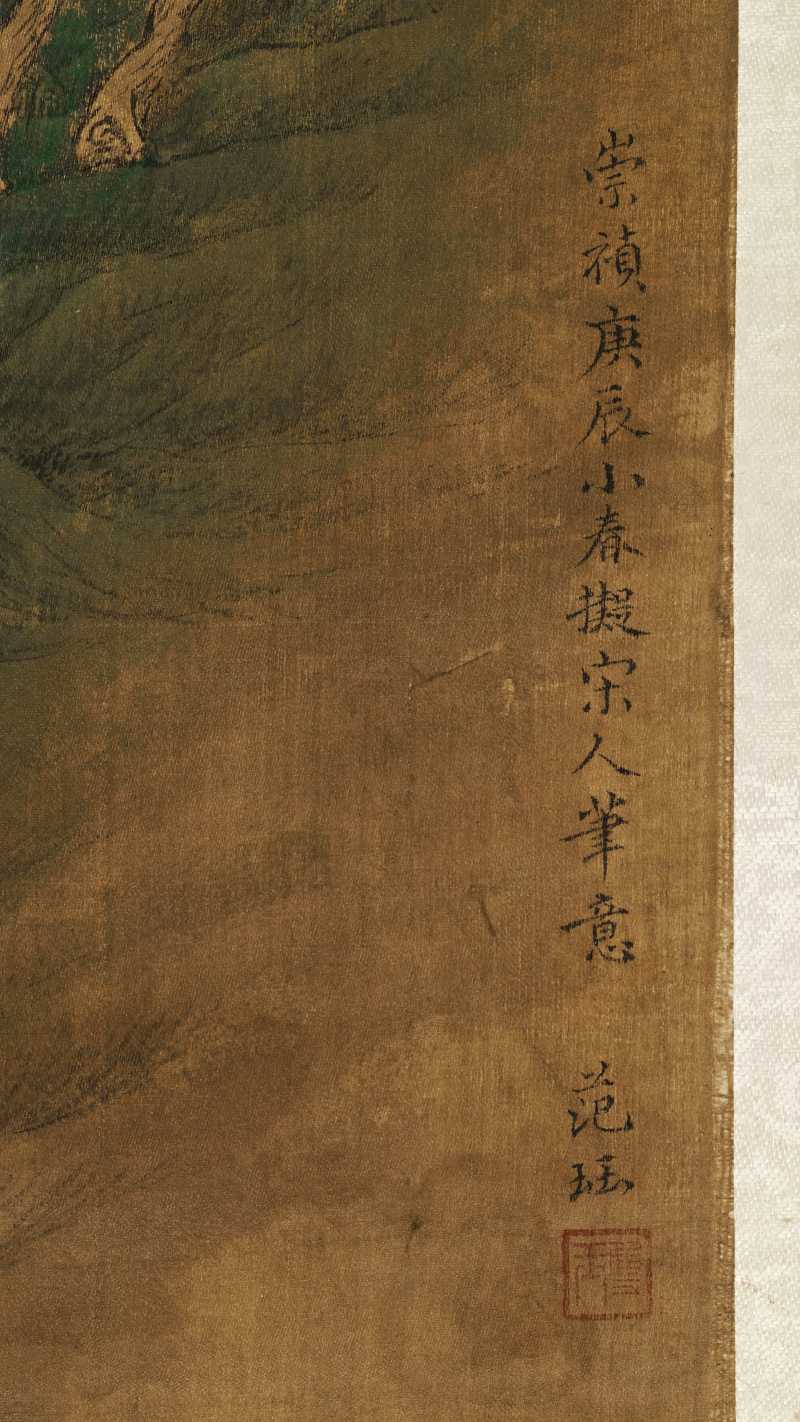 崇禎庚辰小春擬宋人筆意
范珏